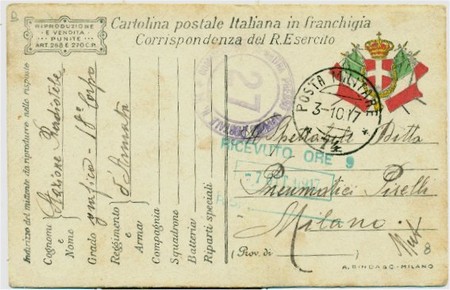 RIPRODUZIONE
E VENDITA
PUNITE
ART. 268 E 270 C.P.
Cartolina postale Italiana in franchigia
Corrispondenza del R. Esercito
Indirizzo del mittente da riprodurre nelle risposte
Cognome
e
Nome
Grado
Reggimento
e
Arma
Compagnia
Squadrone
Batteria
Riparti speciali
Stazione
18° Corpo
d'Armata
27
POSTA MILITARE
3-10 17
RICEVUTO ORE 9
Spettabile Ditta
Pneumatici Pirelli
Milano
(Prov. di
)
8
A. RINDAGO - MILANO